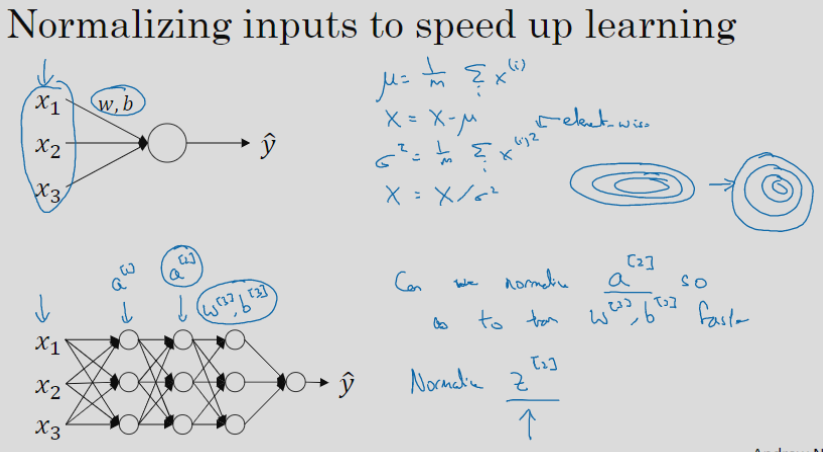 Normalizing inputs to speed up learning
x₁
x₂
x₃
w, b
ŷ
μ = 1/m Σᵢ x⁽ⁱ⁾
X = X - μ
σ² = 1/m Σᵢ x⁽ⁱ⁾² ← element-wise
X = X/σ²
a[1]
a[2]
w[3], b[3]
x₁
x₂
x₃
ŷ
Can we normalize a[2] so
as to train w[3], b[3] faster
Normalize z[2]
Andrew N